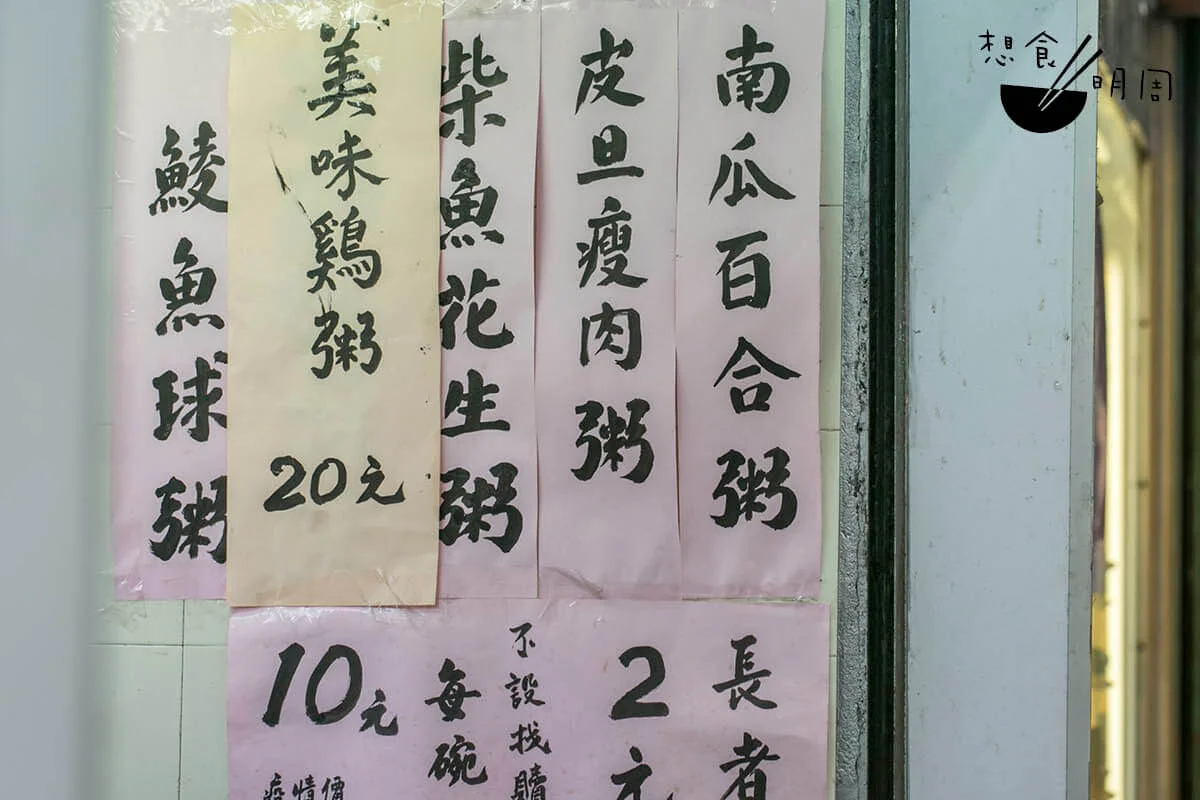 南瓜百合粥
皮旦瘦肉粥
柴魚花生粥
美味鷄粥 20元
鯪魚球粥
長者
2元
不設找贖
每碗
10元
疫情價
想食
明周